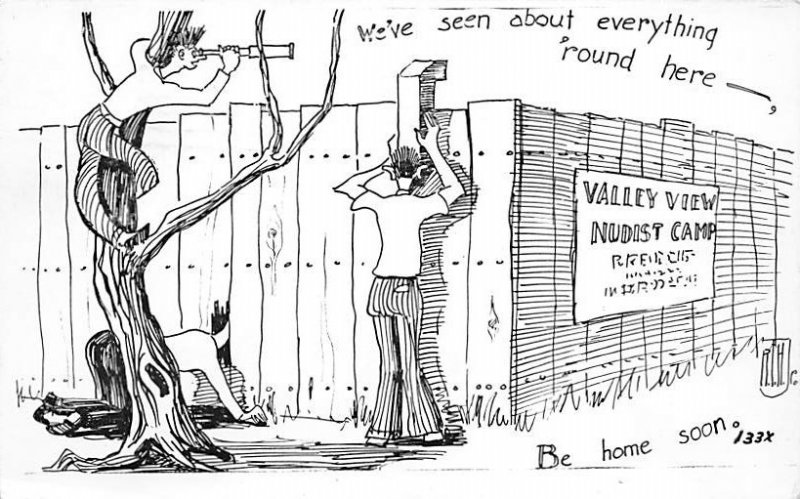 We've seen about everything
'round here —,
VALLEY VIEW
NUDIST CAMP
Be home soon.
133X